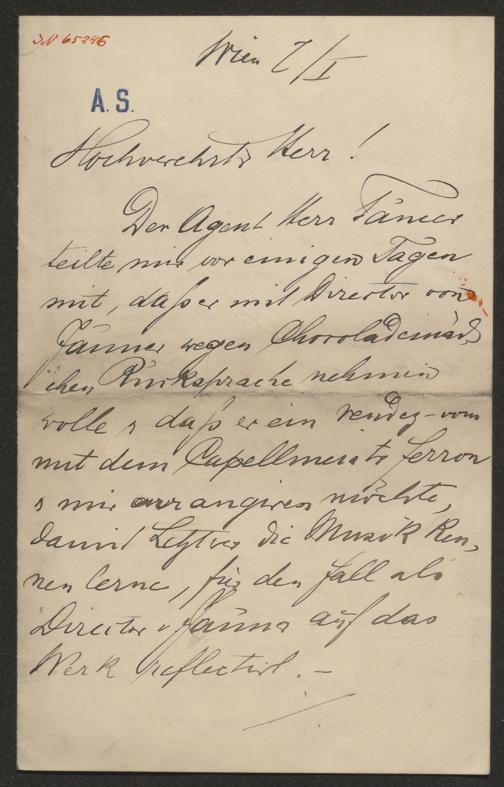 IN 65246
Wien 7/I
A.S.
Hochverehrter Herr!
Der Agent Herr Täncer
teilte mir vor einigen Tagen
mit, daß er mit Director von
Jauner wegen Chocolademäd
chen Rücksprache nehmen
wolle u daß er ein rendez-vous
mit dem Capellmeister Ferron
u mir arrangiren möchte,
damit Letzterer die Musik ken,
nen lerne, für den Fall als
Director v Jauner auf das
Werk reflectirt. –